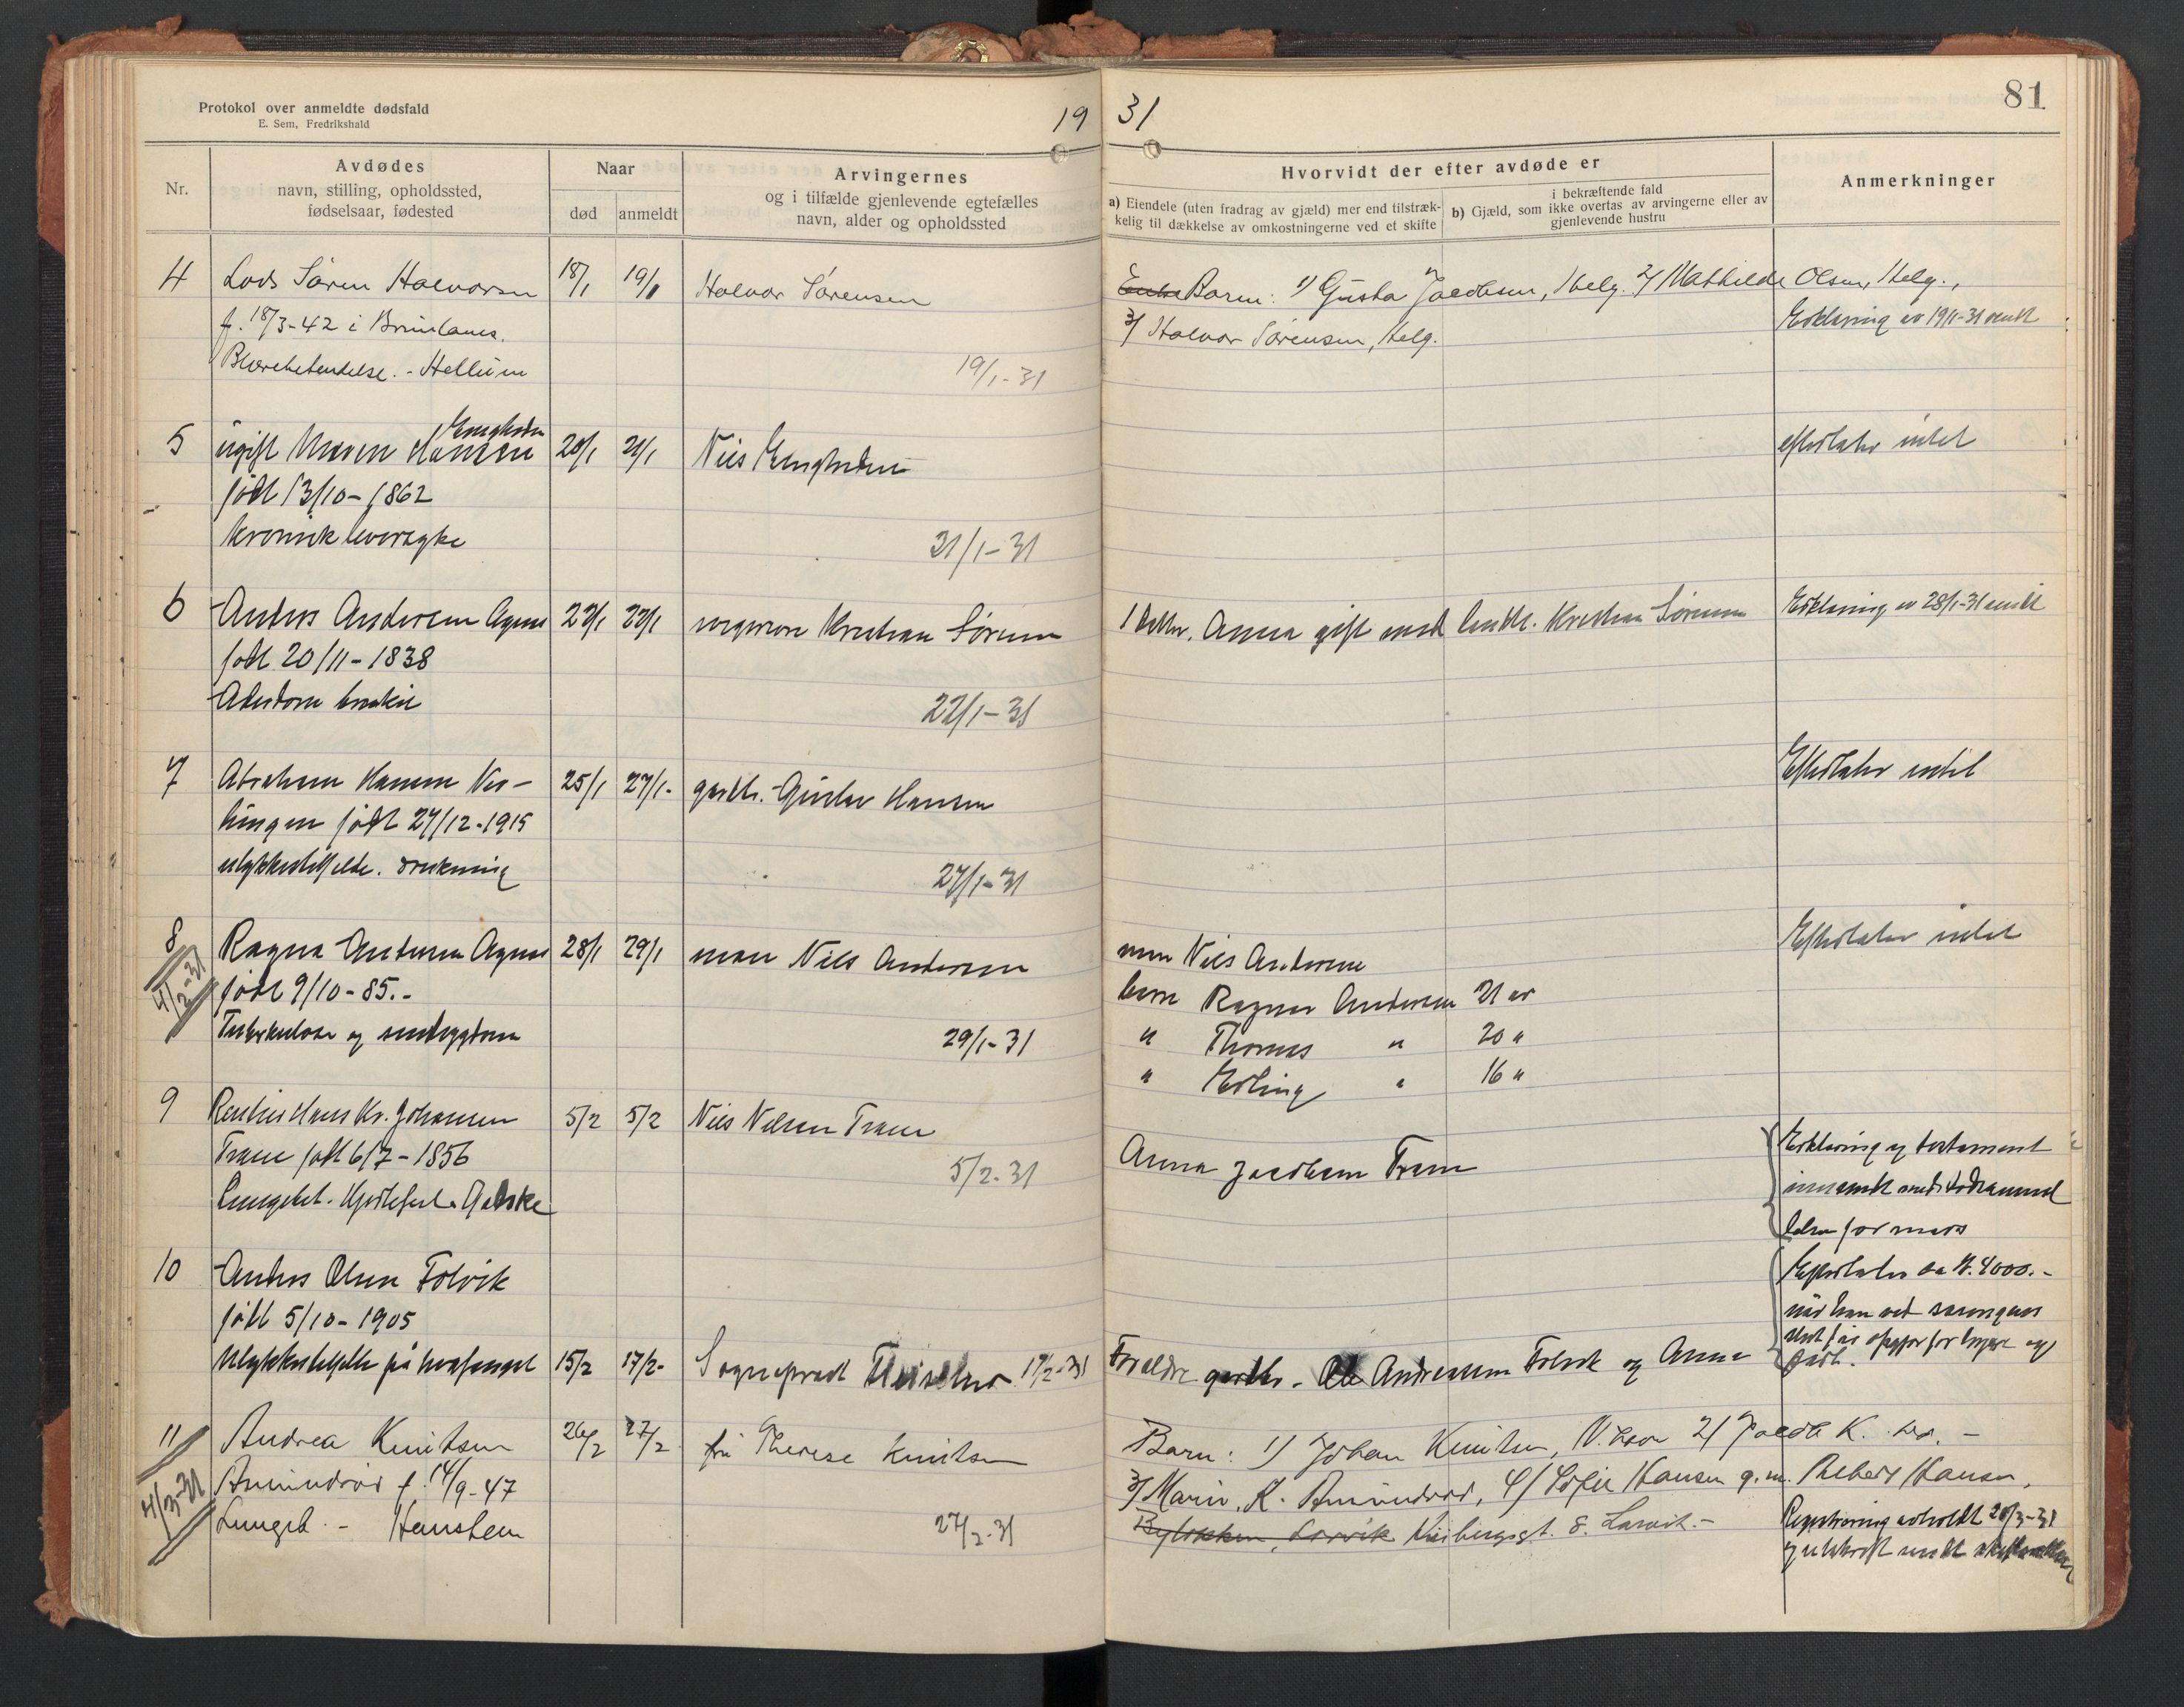 Protokol over anmeldte dødsfald
E. Sem, Fredrikshald
19 31
81
Nr.
Avdødes
navn, stilling, opholdssted,
fødselsaar, fødested
Naar
død anmeldt
Arvingernes
og i tilfælde gjenlevende egtefælles
navn, alder og opholdssted
Hvorvidt der efter avdøde er
a) Eiendele (uten fradrag av gjæld) mer end tilstræk-
kelig til dækkelse av omkostningerne ved et skifte
i bekræftende fald
b) Gjæld, som ikke overtas av arvingerne eller av
gjenlevende hustru
Anmerkninger
4 Lods Søren Halvorsen 18/1 19/1 Halvor Sørensen
f. 18/3-42 i Brunlanes.
Blærebetendelse. - Hellum
19/1-31
Enke Barn: 1) Gusta Jacobsen, Helg. 2) Mathilde Olsen, Helg.,
3) Halvor Sørensen, Helg.
Erklæring av 19/1-31 sendt
5 ugift Maren Hansen 20/1 21/1 Nils
født 13/10-1862
kronisk
21/1-31
efterlater intet
6 Anders Andersen Agnes 22/1 22/1 Kristian Sørensen
født 20/11-1838
Alderdom
22/1-31
1 datter, Anna gift med Kristian Sørensen
Erklæring av 28/1-31 sendt
7 Abraham Hansen 25/1 27/1- gaardbr. Gustav Hansen
født 27/12-1915
ulykkestilfelde. drukning
27/1-31
Efterlater intet
8 Ragna Andersen Agnes 28/1 29/1 man Nils Andersen
4/2-31
født 9/10-85.-
Tuberkulose og
29/1-31
man Nils Andersen
barn Ragnar Andersen 21 år
" Thomas " 20 "
" Erling " 16 "
Efterlater intet
9 Rentier Hans Kr. Johansen 5/2 5/2 Nils Nilsen Trane
Trane født 6/7-1856
Lungebet. Hjertefeil.
5/2-31
Anna Jacobsen Trane
Erklæring og testament
innsendt med
for mars
10 Anders Olsen Folvik
født 5/10-1905
Ulykkestilfelle på hvalfangst 15/2 17/2- Sogneprest 17/2-31
Foreldre gaardbr. Ole Andreassen Folvik og Anna
Efterlater ca kr. 4000.-
11 Andrea Knutsen 26/2 27/2 fru Therese Knutsen
4/3-31
Amundrød f. 14/9-47
Lungeb. -
27/2-31
Barn: 1) Johan Knutsen, 2) Jacob K. -
3) Marie K. Amundrød, 4) Sofie Hansen g.m. Hansen,
Byløkken, Larvik. 8. Larvik.-
Registrering avholdt 20/3-31
og utskrift sendt